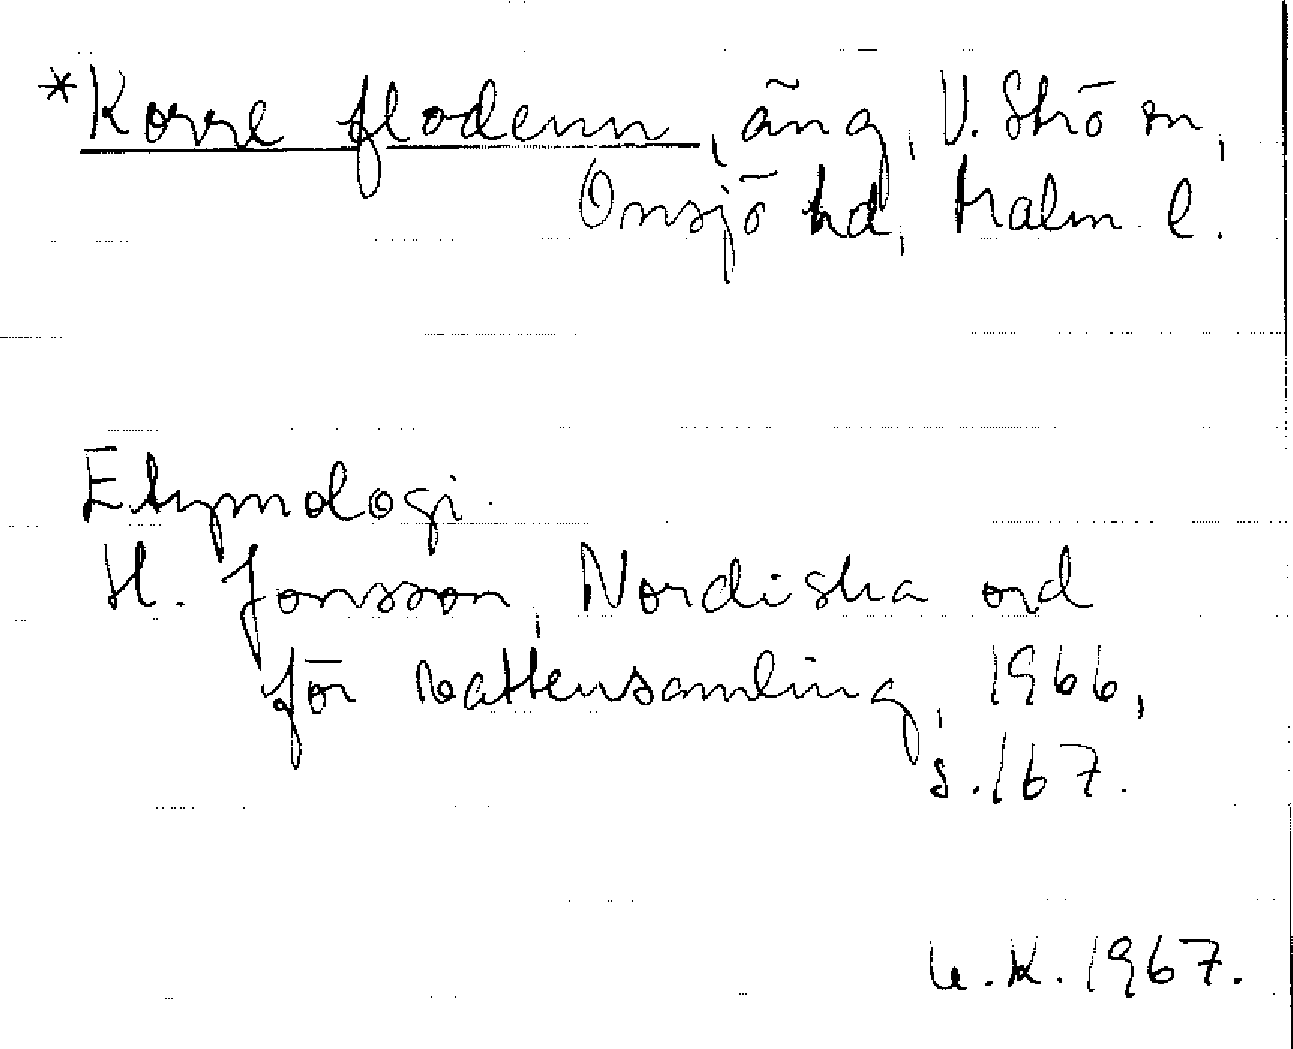 *Korre flodenn, äng, V. Strö m,
Onsjö hd, Malm. l.
Etymologi.
H. Jonsson, Nordiska ord
för vattensamling, 1966,
s. 167.
U.K. 1967.